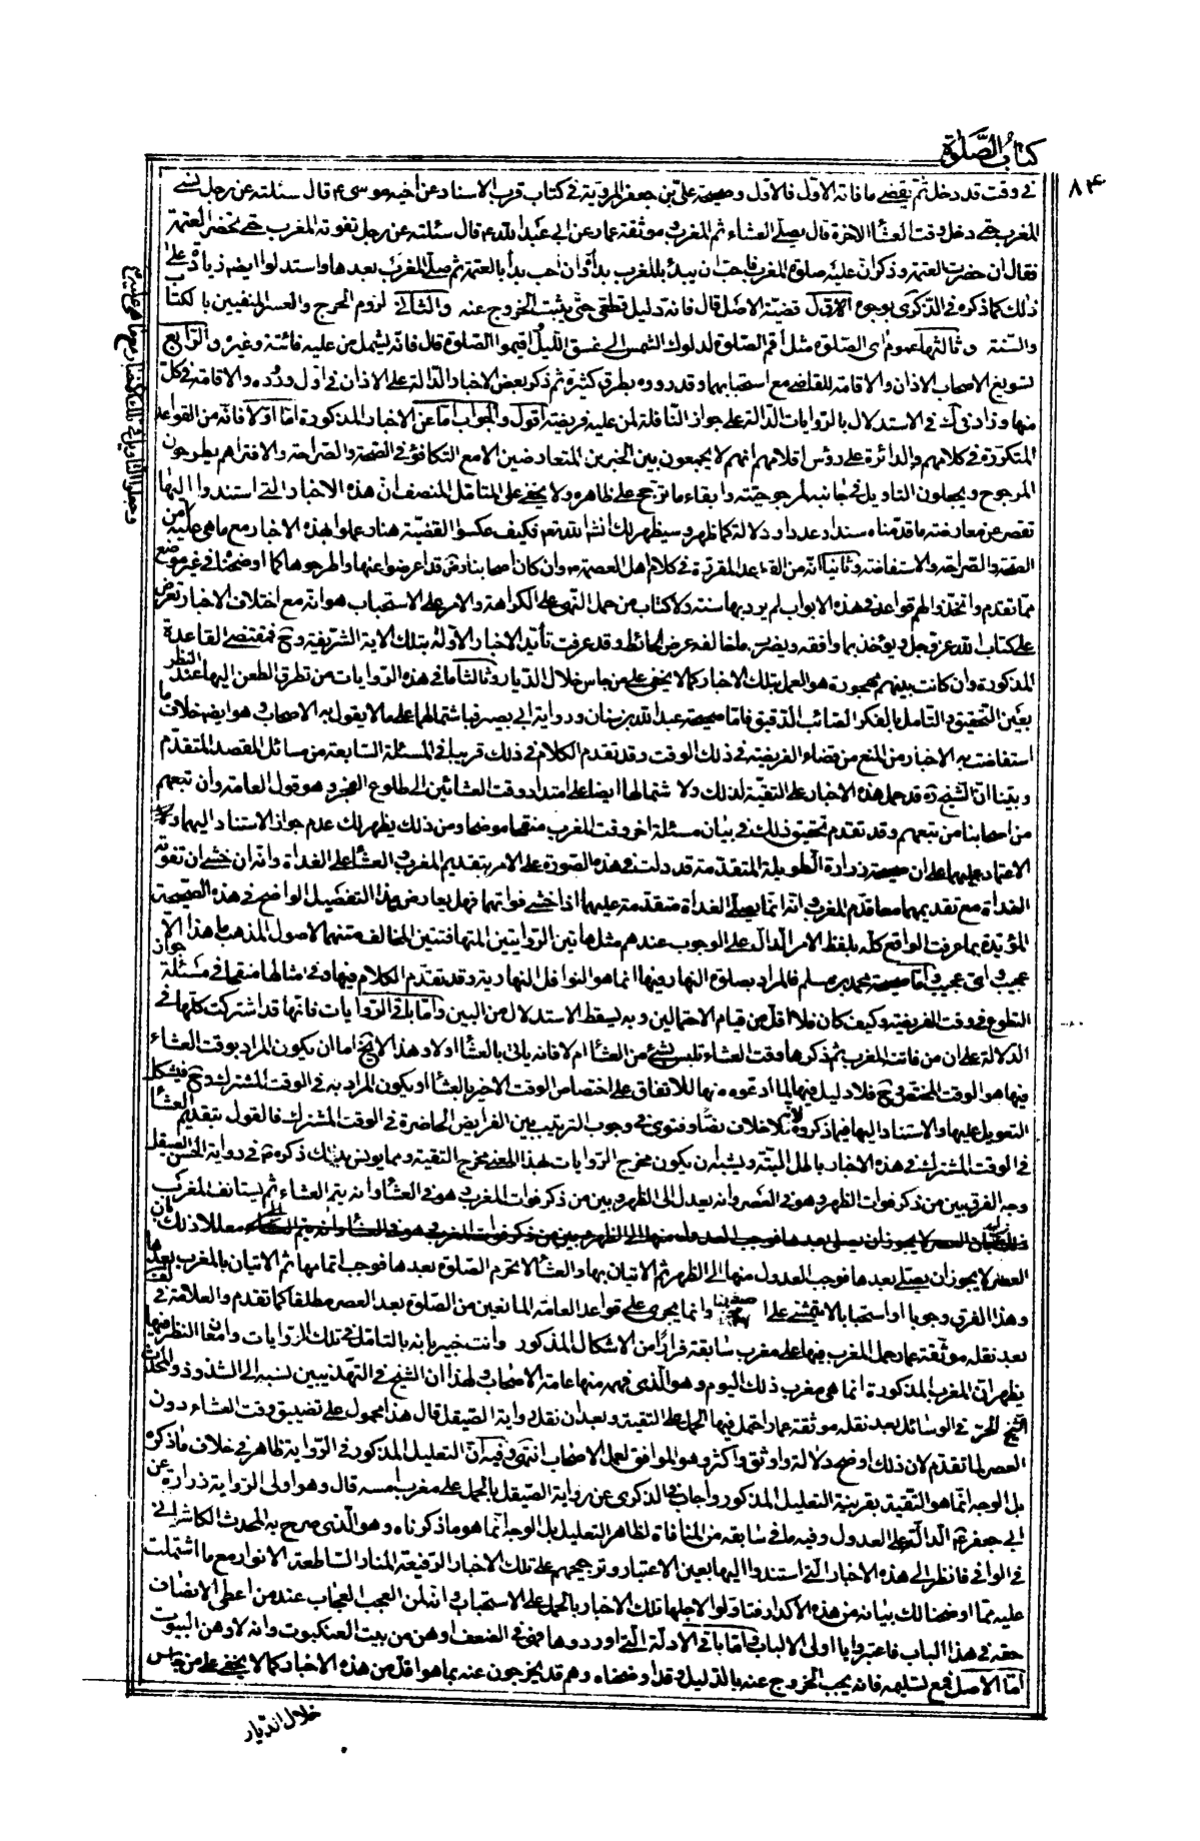 كتاب الصلوة
٨٤
في وقت قد دخل ثم يقضي ما فاته الاول فالاول وصحيحة علي بن جعفر المروية في كتاب قرب الاسناد عن اخيه موسى ع قال سئلته عن رجل نسي
المغرب حتى دخل وقت العشاء الاخرة قال يصلي العشاء ثم المغرب وموثقة عمار عن ابي عبد الله ع قال سئلته عن رجل تفوته المغرب حتى تحضر العتمة
فقال ان حضرت العتمة وذكر ان عليه صلوة المغرب فاحب ان يبدء بالمغرب بدأ وان احب بدأ بالعتمة ثم صلى المغرب بعدها واستدلوا ايضا زيادة على
ذلك كما ذكره في الذكرى بوجوه الاول قضية الاصل قال فانه دليل قطعي حتى يثبت الخروج عنه والثاني لزوم الحرج والعسر المنفيين بالكتاب
والسنة وثالثها عموم اي الصلوة مثل اقم الصلوة لدلوك الشمس الى غسق الليل اقيموا الصلوة قال فانه يشمل من عليه فائتة وغيره والرابع
تسويغ الاصحاب الاذان والاقامة للقاضي مع استحبابهما وقد رووه بطرق كثيرة ثم ذكر بعض الاخبار الدالة على الاذان في اول ورده والاقامة في كل
منها وزاد في ك في الاستدلال بالروايات الدالة على جواز النافلة لمن عليه فريضة اقول والجواب اما عن الاخبار المذكورة اما اولا فانه من القواعد
المتكررة في كلامهم والدائرة على رؤس اقلامهم انهم لا يجمعون بين الخبرين المتعارضين الا مع التكافؤ في الصحة والصراحة والا فتراهم يطرحون
المرجوح ويجعلون التاويل في جانبه لمرجوحيته وابقاء ما ترجح على ظاهره ولا يخفى على المتامل المنصف ان هذه الاخبار التي استندوا اليها
تقصر عن معارضة ما قدمناه سندا وعددا ودلالة كما ظهر وسيظهر لك انشاء الله تع فكيف عكسوا القضية هنا وعملوا بهذه الاخبار مع ما هي عليه من
الصحة والصراحة والاستفاضة وثانيا انه من القواعد المقررة في كلام اهل العصمة ع وان كان اصحابنا رض قد اعرضوا عنها واطرحوها كما اوضحنا في غير موضع
مما تقدم واتخذوا لهم قواعد في هذه الابواب لم يرد بها سنة ولا كتاب من حمل النهي على الكراهة والامر على الاستحباب هو انه مع اختلاف الاخبار تعرض
على كتاب الله عز وجل ويؤخذ بما وافقه ويضرب ما خالفه عرض الحائط وقد عرفت تأيد الاخبار الاولة بتلك الاية الشريفة وح فمقتضى القاعدة
المذكورة وان كانت بينهم مهجورة هو العمل بتلك الاخبار كما لا يخفى على من جاس خلال الديار وثالثا ما في هذه الروايات من تطرق الطعن اليها عند النظر
بعين التحقيق والتامل بالفكر الصائب الدقيق فاما صحيحة عبد الله بن سنان ورواية ابي بصير فباشتمالهما على ما لا يقول به الاصحاب وهو ايضا خلاف ما
استفاضت به الاخبار من المنع من قضاء الفريضة في ذلك الوقت وقد تقدم الكلام في ذلك قريبا في المسئلة السابعة من مسائل المقصد المتقدم
وبينا ان الشيخ ره قد حمل هذه الاخبار على التقية لذلك ولاشتمالها ايضا على امتداد وقت العشائين الى طلوع الفجر وهو قول العامة وان تبعهم
من اصحابنا من تبعهم وقد تقدم تحقيق ذلك في بيان مسئلة اخر وقت المغرب منقحا موضحا ومن ذلك يظهر لك عدم جواز الاستناد اليهما ولا
الاعتماد عليهما على ان صحيحة زرارة الطويلة المتقدمة قد دلت في هذه الصورة على الامر بتقديم المغرب والعشاء على الغداة وانه ان خشي ان تفوته
الغداة مع تقديمهما معا قدم المغرب وانه انما يصلي الغداة متقدمة عليهما اذا خشي فواتهما فهل يعارض هذا التفصيل الواضح في هذه الصحيحة
المؤيدة بما عرفت الواقع كله بلفظ الامر الدال على الوجوب عندهم مثل هاتين الروايتين المتهافتتين المخالف متنهما لاصول المذهب ما هذا الا
عجيب واي عجيب واما صحيحة محمد بن مسلم فالمراد بصلوة النهار فيها انما هو النوافل النهارية وقد تقدم الكلام فيها وفي امثالها منقحا في مسئلة جواز
التطوع في وقت الفريضة وكيف كان فلا اقل من قيام الاحتمالين وبه يسقط الاستدلال من البين واما باقي الروايات فانها قد اشتركت كلها في
الدلالة على ان من فاتت المغرب ثم ذكرها وقت العشاء تلبس بشئ من العشا ام لا فانه ياتي بالعشا اولا وهذا الايخ اما ان يكون المراد بوقت العشاء
فيها هو الوقت المختص وح فلا دليل فيها لما ادعوه منها للاتفاق على اختصاص الوقت الاخير بالعشا او يكون المراد به في الوقت المشترك وح فيشكل
التعويل عليها والاستناد اليها فيما ذكروه لانه لا خلاف نصا وفتوى في وجوب الترتيب بين الفرايض الحاضرة في الوقت المشترك فالقول بتقديم العشا
في الوقت المشترك في هذه الاخبار باطل البتة ويشبه ان يكون مخرج الروايات بهذا المعنى مخرج التقية ومما يونس بذلك ذكره ع في رواية الحسن الصيقل
وجه الفرق بين من ذكر فوات الظهر وهو في العصر وانه يعدل الى الظهر وبين من ذكر فوات المغرب وهو في العشا وانه يتم العشاء ثم يستانف المغرب
معللا ذلك بان
العصر لا يجوز ان يصلي بعدها فوجب العدول منها الى الظهر ثم الاتيان بها والعشا لا يحرم الصلوة بعدها فوجب اتمامها ثم الاتيان بالمغرب بعدها
وهذا الفرق وجوبا او استحبابا لا يتمشى على وانما يجري على قواعد العامة المانعين من الصلوة بعد العصر مطلقا كما تقدم والعلامة في
بعد نقله موثقة عمار حمل المغرب فيها على مغرب سابقة فرارا من الاشكال المذكور وانت خبير بانه بالتامل في تلك الروايات وامعان النظر فيها
يظهر ان المغرب المذكورة انما هي مغرب ذلك اليوم وهو الذي فهمه منها عامة الاصحاب ولهذا ان الشيخ في التهذيبين نسبه الى الشذوذ والمحدث
الشيخ الحر في الوسائل بعد نقله موثقة عمار احتمل فيها الحمل على التقية وبعد ان نقل رواية الصيقل قال هذا محمول على تضييق وقت العشاء دون
العصر لما تقدم لان ذلك اوضح دلالة واوثق واكثر وهو الموافق لعمل الاصحاب انتهى وفيه ان التعليل المذكور في الرواية ظاهر في خلاف ما ذكره
بل الوجه انما هو التقية بقرينة التعليل المذكور واجاب في الذكرى عن رواية الصيقل بالحمل على مغرب امسه قال وهو اولى لرواية زرارة عن
ابي جعفر ع الدالة على العدول وفيه ما في سابقه من المنافاة لظاهر التعليل بل الوجه انما هو ما ذكرناه وهو الذي صرح به المحدث الكاشاني
في الوافي فانظر الى هذه الاخبار التي استندوا اليها بعين الاعتبار وترجيحهم على تلك الاخبار الرفيعة المنار الساطعة الانوار مع ما اشتملت
عليه مما اوضحنا لك بيانه من هذه الاكدار فتاولوا لاجلها تلك الاخبار بالحمل على الاستحباب وانه لمن العجب العجاب عند من اعطى الانصاف
حقه في هذا الباب فاعتبروا يا اولى الالباب واما باقي الادلة التي اوردوها فهي في الضعف اوهن من بيت العنكبوت وانه لاوهن البيوت
اما الاصل فمع تسليمه فانه يجب الخروج عنه بالدليل وقد اوضحناه وهم قد يخرجون عنه بما هو اقل من هذه الاخبار كما لا يخفى على من جاس
خلال الديار
وجعلوا التاويل في تلك الاخبار مع ما هي عليه